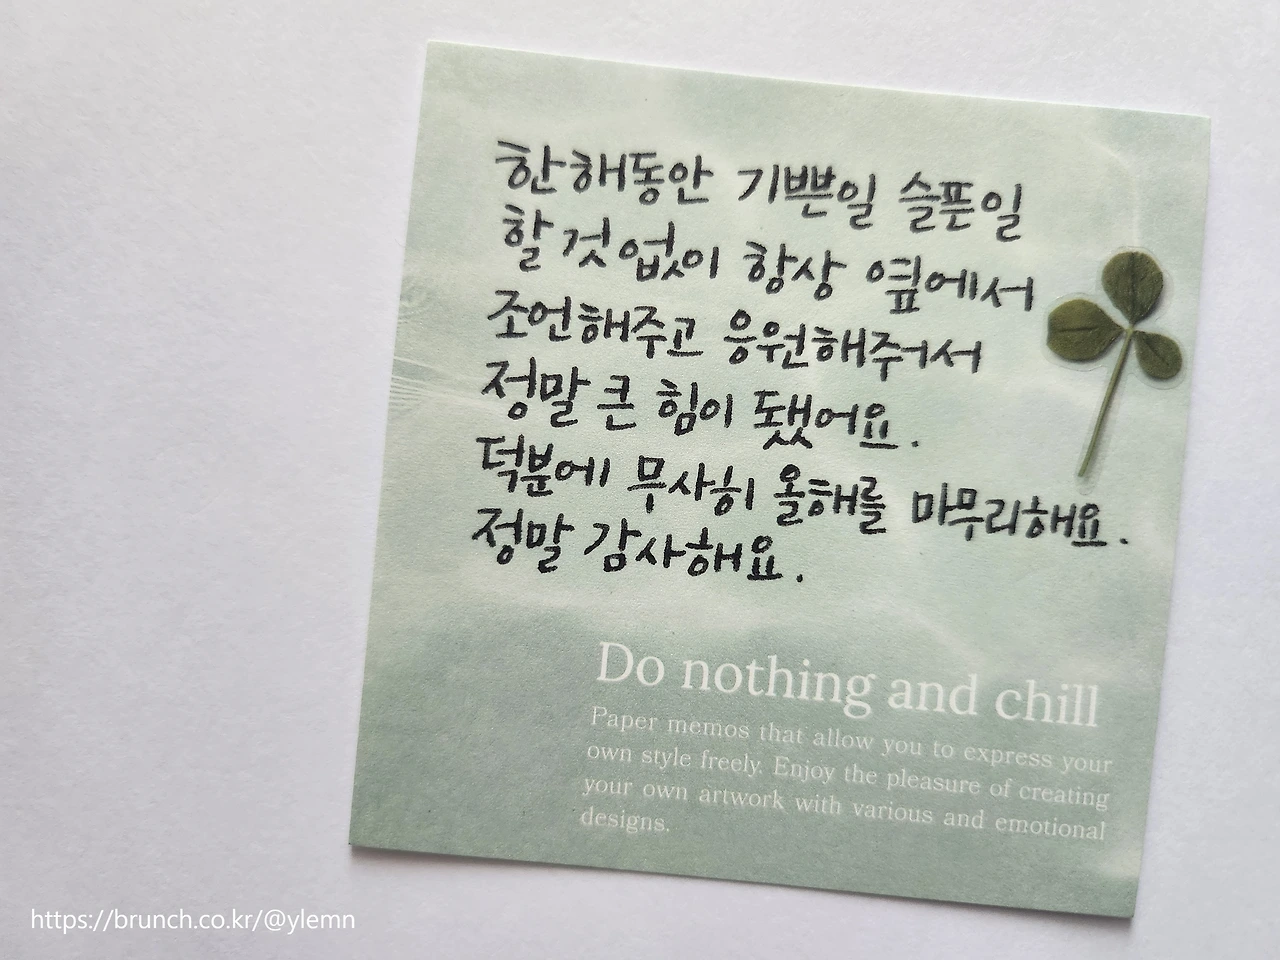 한해동안 기쁜일 슬픈일
할 것 없이 항상 옆에서
조언해주고 응원해주어서
정말 큰 힘이 됐어요.
덕분에 무사히 올해를 마무리해요.
정말 감사해요.
Do nothing and chill
Paper memos that allow you to express your
own style freely. Enjoy the pleasure of creating
your own artwork with various and emotional
designs.
https://brunch.co.kr/@ylemn